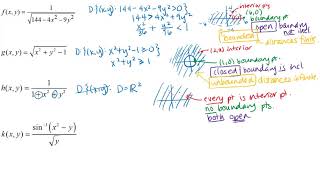 f(x,y) = 1/√(144−4x²−9y²) D:{(x,y): 144−4x²−9y²>0}
144>4x²+9y²
x²/36 + y²/16 < 1
interior pt.
(6,0)
boundary pt.
open boundary not incl
bounded distances finite
g(x,y) = √(x²+y²−1) D:{(x,y): x²+y²−1≥0}
x²+y²≥1
(2,2) interior
(1,0) boundary pt.
closed boundary is incl
unbounded distances infinite.
D:{(x,y): D=R²
every pt is interior pt.
no boundary pts.
both open
k(x,y) = sin⁻¹(x²−y)/√y